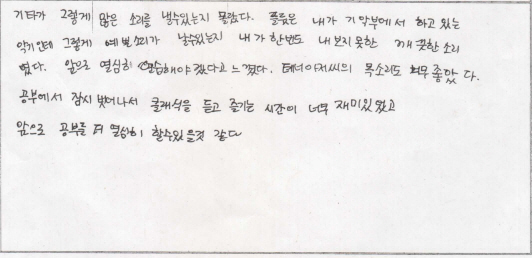 기타가 그렇게 많은 소리를 낼수있는지 몰랐다. 플룻은 내가 기악부에서 하고 있는
악기인데 그렇게 예쁜소리가 날수있는지 내가 한번도 내보지못한 깨끗한 소리
였다. 앞으로 열심히 연습해야겠다고 느꼈다. 테너아저씨의 목소리도 너무좋았다.
공부에서 잠시 벗어나서 클래식을 듣고 즐기는 시간이 너무 재미있었고
앞으로 공부를 더 열심히 할수있을것 같다